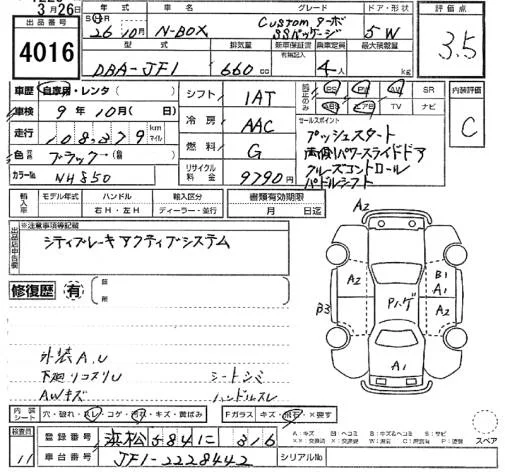 3月26日
出品番号
4016
年式 車名 グレード ドア・形状
S H R 26年10月 N-BOX Custom ターボ SSパッケージ 5 W
評価点
3.5
型式 排気量 新車保証書 有無記入 乗車定員 最大積載量
DBA-JF1 660cc 4人 kg
車歴 自家用・レンタ( )
車検 9年10月( 日)
走行 108,379 km マイル
色 ブラック→(自
カラーNo NH850
シフト 1AT
冷房 AAC
燃料 G
リサイクル料金 9790円
PS PW AW SR
ABS エアB TV ナビ
セールスポイント
プッシュスタート
両側パワースライドドア
クルーズコントロール
パドルシフト
内装評価
C
輸入車 モデル年式 年 ハンドル 右H・左H 輸入区分 ディーラー・並行 書類有効期限 月 日迄
出品店申告欄
※注意事項等記載
シティブレーキアクティブシステム
修復歴 有 箇所
A2
A2 B1
A1
B3 Pハゲ A2
A1
外装A,U
下廻リコスリU シートシミ
AWキズ ハンドルスレ
内装シート 穴・破れ・スレ・コゲ・汚れ・キズ・黄ばみ
Fガラス キズ・飛石・X要す
スペア
検査員
11
登録番号 浜松 584 に 816
車台番号 JF1-2228442
シリアルNo